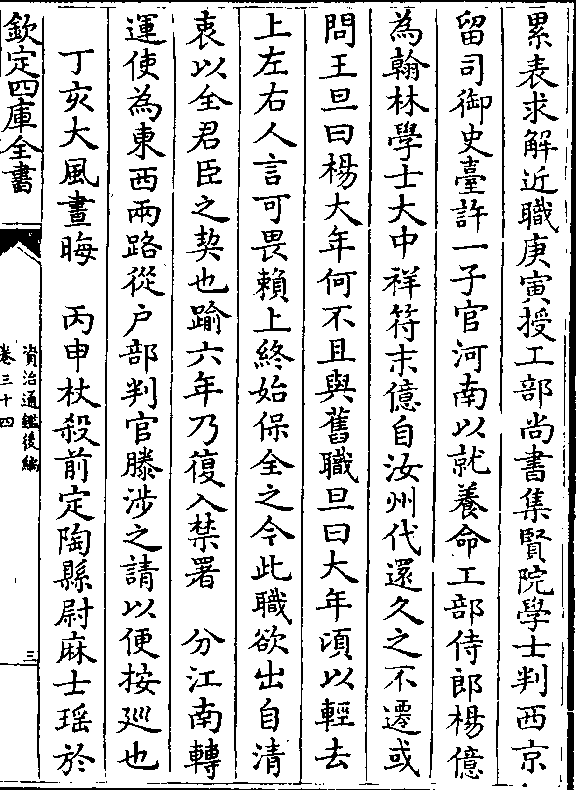 累表求解近職庚寅授工部尚書集賢院學士判西京
留司御史臺許一子官河南以就養命工部侍郎楊億
為翰林學士大中祥符末億自汝州代還久之不遷或
問王旦曰楊大年何不且與舊職旦曰大年頃以輕去
上左右人言可畏賴上終始保全之今此職欲出自清
衷以全君臣之契也踰六年乃復入禁署　分江南轉
運使為東西兩路從户部判官滕涉之請以便按廵也
丁亥大風晝晦　丙申杖殺前定陶縣尉麻士瑶於
欽定四庫全書
資治通鑑後編
卷三十四
三